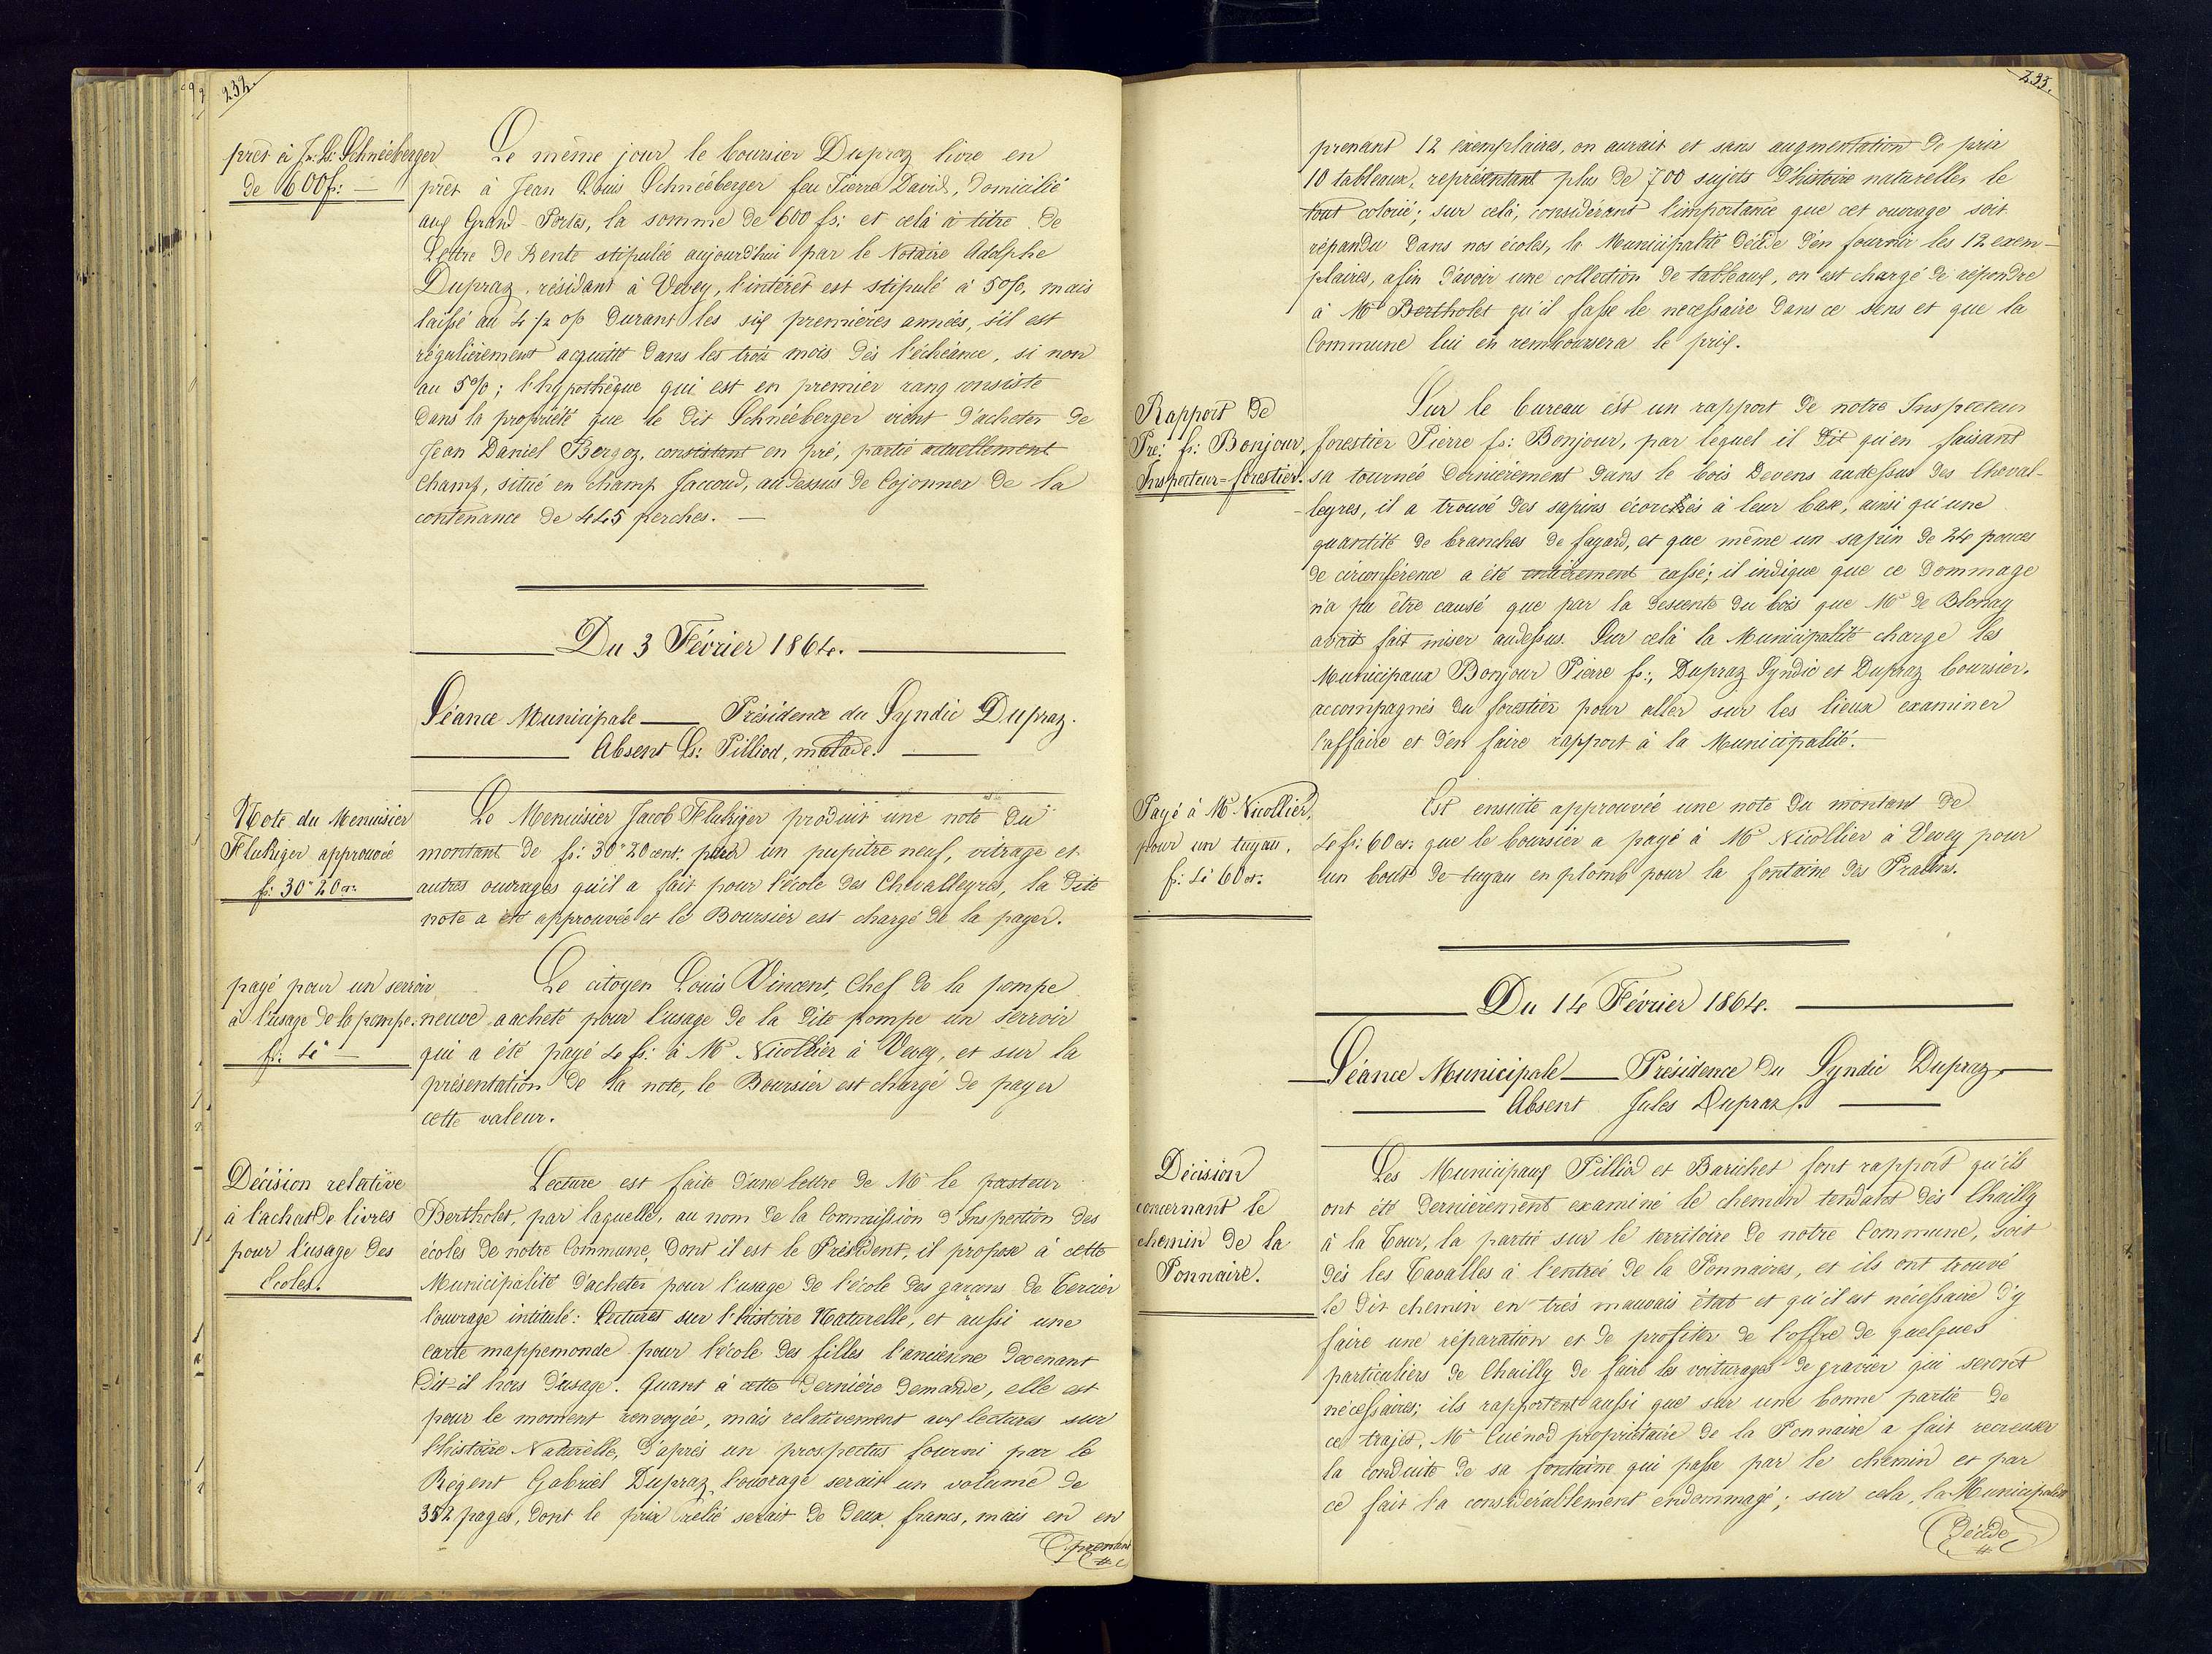 232.
prêt à Jn. Ls. Schnéeberger
de 600 fs: —
Le même jour le boursier Dupraz livre en
prêt à Jean Louis Schnéeberger feu Pierre David, domicilié
aux Grand-Portes, la somme de 600 fs: et celà à titre de
Lettre de Rente stipulée aujourd'hui par le Notaire Adolphe
Dupraz, résidant à Vevey, l'intérêt est stipulé à 5 0/0, mais
laissé au 4 1/2 0/0 durant les six premières années, s'il est
régulièrement acquitté dans les trois mois dès l'échéance, si non
au 5 0/0; l'hypothèque qui est en premier rang consiste
dans la propriété que le dit Schnéeberger vient d'acheter de
Jean Daniel Bergoz, consistant en pré, partie actuellement
champ, situé en champ Jaccoud, au dessus de Cojonnex de la
contenance de 445 perches. —
Du 3 Février 1864.
Séance Municipale — Présidence du Syndic Dupraz.
Absent Ls: Pilliod, malade.
Note du Menuisier
Flukiger approuvée
fs: 30" 20 cs:
Le Menuisier Jacob Flukiger produit une note du
montant de fs: 30" 20 cent. pour un pupitre neuf, vitrage et
autres ouvrages qu'il a fait pour l'école des Chevalleyres, la dite
note a été approuvée et le Boursier est chargé de la payer.
payé pour un serroir
à l'usage de la pompe.
fs: 4" —
Le citoyen Louis Vincent, Chef de la pompe
neuve a acheté pour l'usage de la dite pompe un serroir
qui a été payé 4 fs: à Mr Nicollier à Vevey, et sur la
présentation de la note, le Boursier est chargé de payer
cette valeur.
Décision relative
à l'achat de livres
pour l'usage des
Ecoles.
Lecture est faite d'une lettre de Mr le pasteur
Bertholet, par laquelle, au nom de la Commission d'Inspection des
écoles de notre Commune, dont il est le Président, il propose à cette
Municipalité d'acheter pour l'usage de l'école des garçons de Tercier
l'ouvrage intitulé: Lectures sur l'histoire Naturelle, et aussi une
carte mappemonde pour l'école des filles l'ancienne devenant
dit-il hors d'usage. Quant à cette dernière demande, elle est
pour le moment renvoyée, mais relativement aux lectures sur
l'histoire Naturelle, d'après un prospectus fourni par le
Régent Gabriel Dupraz, l'ouvrage serait un volume de
352 pages, dont le prix relié serait de deux francs, mais en en
prenant
233.
prenant 12 exemplaires, on aurait et sans augmentation de prix
10 tableaux, représentant plus de 700 sujets d'histoire naturelle, le
tout colorié; sur celà, considérant l'importance que cet ouvrage soit
répandu dans nos écoles, la Municipalité décide d'en fournir les 12 exem-
plaires, afin d'avoir une collection de tableaux, on est chargé de répondre
à Mr Bertholet qu'il fasse le necessaire dans ce sens et que la
Commune lui en remboursera le prix.
Rapport de
Pre: fs: Bonjour,
Inspecteur=forestier.
Sur le bureau est un rapport de notre Inspecteur
forestier Pierre fs: Bonjour, par lequel il dit qu'en faisant
sa tournée dernièrement dans le bois Devens audessus des Cheval-
-leyres, il a trouvé des sapins écorchés à leur base, ainsi qu'une
quantité de branches de fayard, et que même un sapin de 24 pouces
de circonférence a été entièrement cassé; il indique que ce dommage
n'a pu être causé que par la descente du bois que Mr de Blonay
avait fait miser audessus. Sur celà la Municipalité charge les
Municipaux Bonjour Pierre fs:, Dupraz Syndic et Dupraz boursier,
accompagnés du forestier pour aller sur les lieux examiner
l'affaire et d'en faire rapport à la Municipalité.
Payé à Mr Nicollier,
pour un tuyau,
fs: 4" 60 cs:
Est ensuite approuvée une note du montant de
4 fs: 60 cs: que le boursier a payé à Mr Nicollier à Vevey pour
un bout de tuyau en plomb pour la fontaine des Pralins.
Du 14 Février 1864.
Séance Municipale — Présidence du Syndic Dupraz,
Absent Jules Dupraz.
Décision
concernant le
chemin de la
Ponnaire.
Les Municipaux Pilliod et Barichet font rapport qu'ils
ont été dernièrement examiné le chemin tendant dès Chailly
à la Tour, la partie sur le territoire de notre Commune, soit
dès les Cavalles à l'entrée de la Ponnaires, et ils ont trouvé
le dit chemin en très mauvais état et qu'il est nécessaire d'y
faire une réparation et de profiter de l'offre de quelques
particuliers de Chailly de faire les voiturages de gravier qui seront
nécessaires; ils rapportent aussi que sur une bonne partie de
ce trajet, Mr Cuénod propriétaire de la Ponnaire a fait recreuser
la conduite de sa fontaine qui passe par le chemin et par
ce fait l'a considérablement endommagé; sur cela, la Municipalité
décide